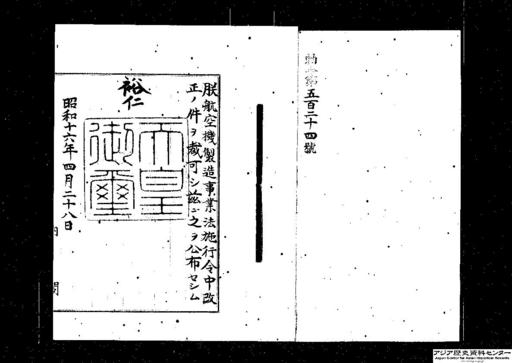 勅令第五百二十四號
朕航空機製造事業法施行令中改
正ノ件ヲ裁可シ茲ニ之ヲ公布セシム
裕仁
天皇
御璽
昭和十六年四月二十八日
内閣
アジア歴史資料センター
Japan Center for Asian Historical Records